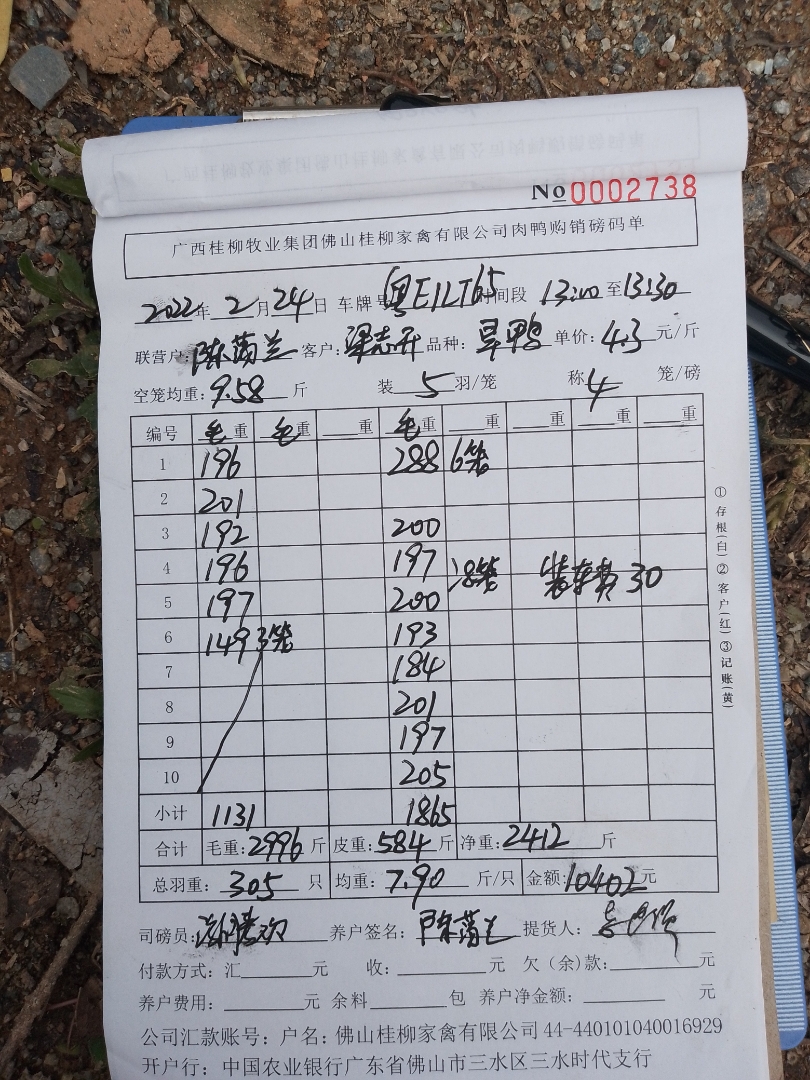 No 0002738
广西桂柳牧业集团佛山桂柳家禽有限公司肉鸭购销磅码单
2022年 2月 24日 车牌号 粤E1LT65 时间段 13:00至13:30
联营户: 陈蒲兰 客户: 梁志开 品种: 旱鸭 单价: 4.3元/斤
空笼均重: 9.58斤 装 5羽/笼 称 4笼/磅
编号 毛重 毛重 重 毛重 重 重 重 重
1 196 288 6笼
2 201
3 192 200
4 196 197
装车费 30
5 197 200
6 149 3笼 193
7 184
8 201
9 197
10 205
小计 1131 1865
合计 毛重: 2996斤 皮重: 584斤 净重: 2412斤
总羽重: 305只 均重: 7.90斤/只 金额: 10402元
司磅员: 养户签名: 陈蒲兰 提货人:
付款方式: 汇 元 收: 元 欠(余)款: 元
养户费用: 元 余料 包 养户净金额: 元
公司汇款账号: 户名: 佛山桂柳家禽有限公司 44-440101040016929
开户行: 中国农业银行广东省佛山市三水区三水时代支行
①存根(白)②客户(红)③记账(黄)